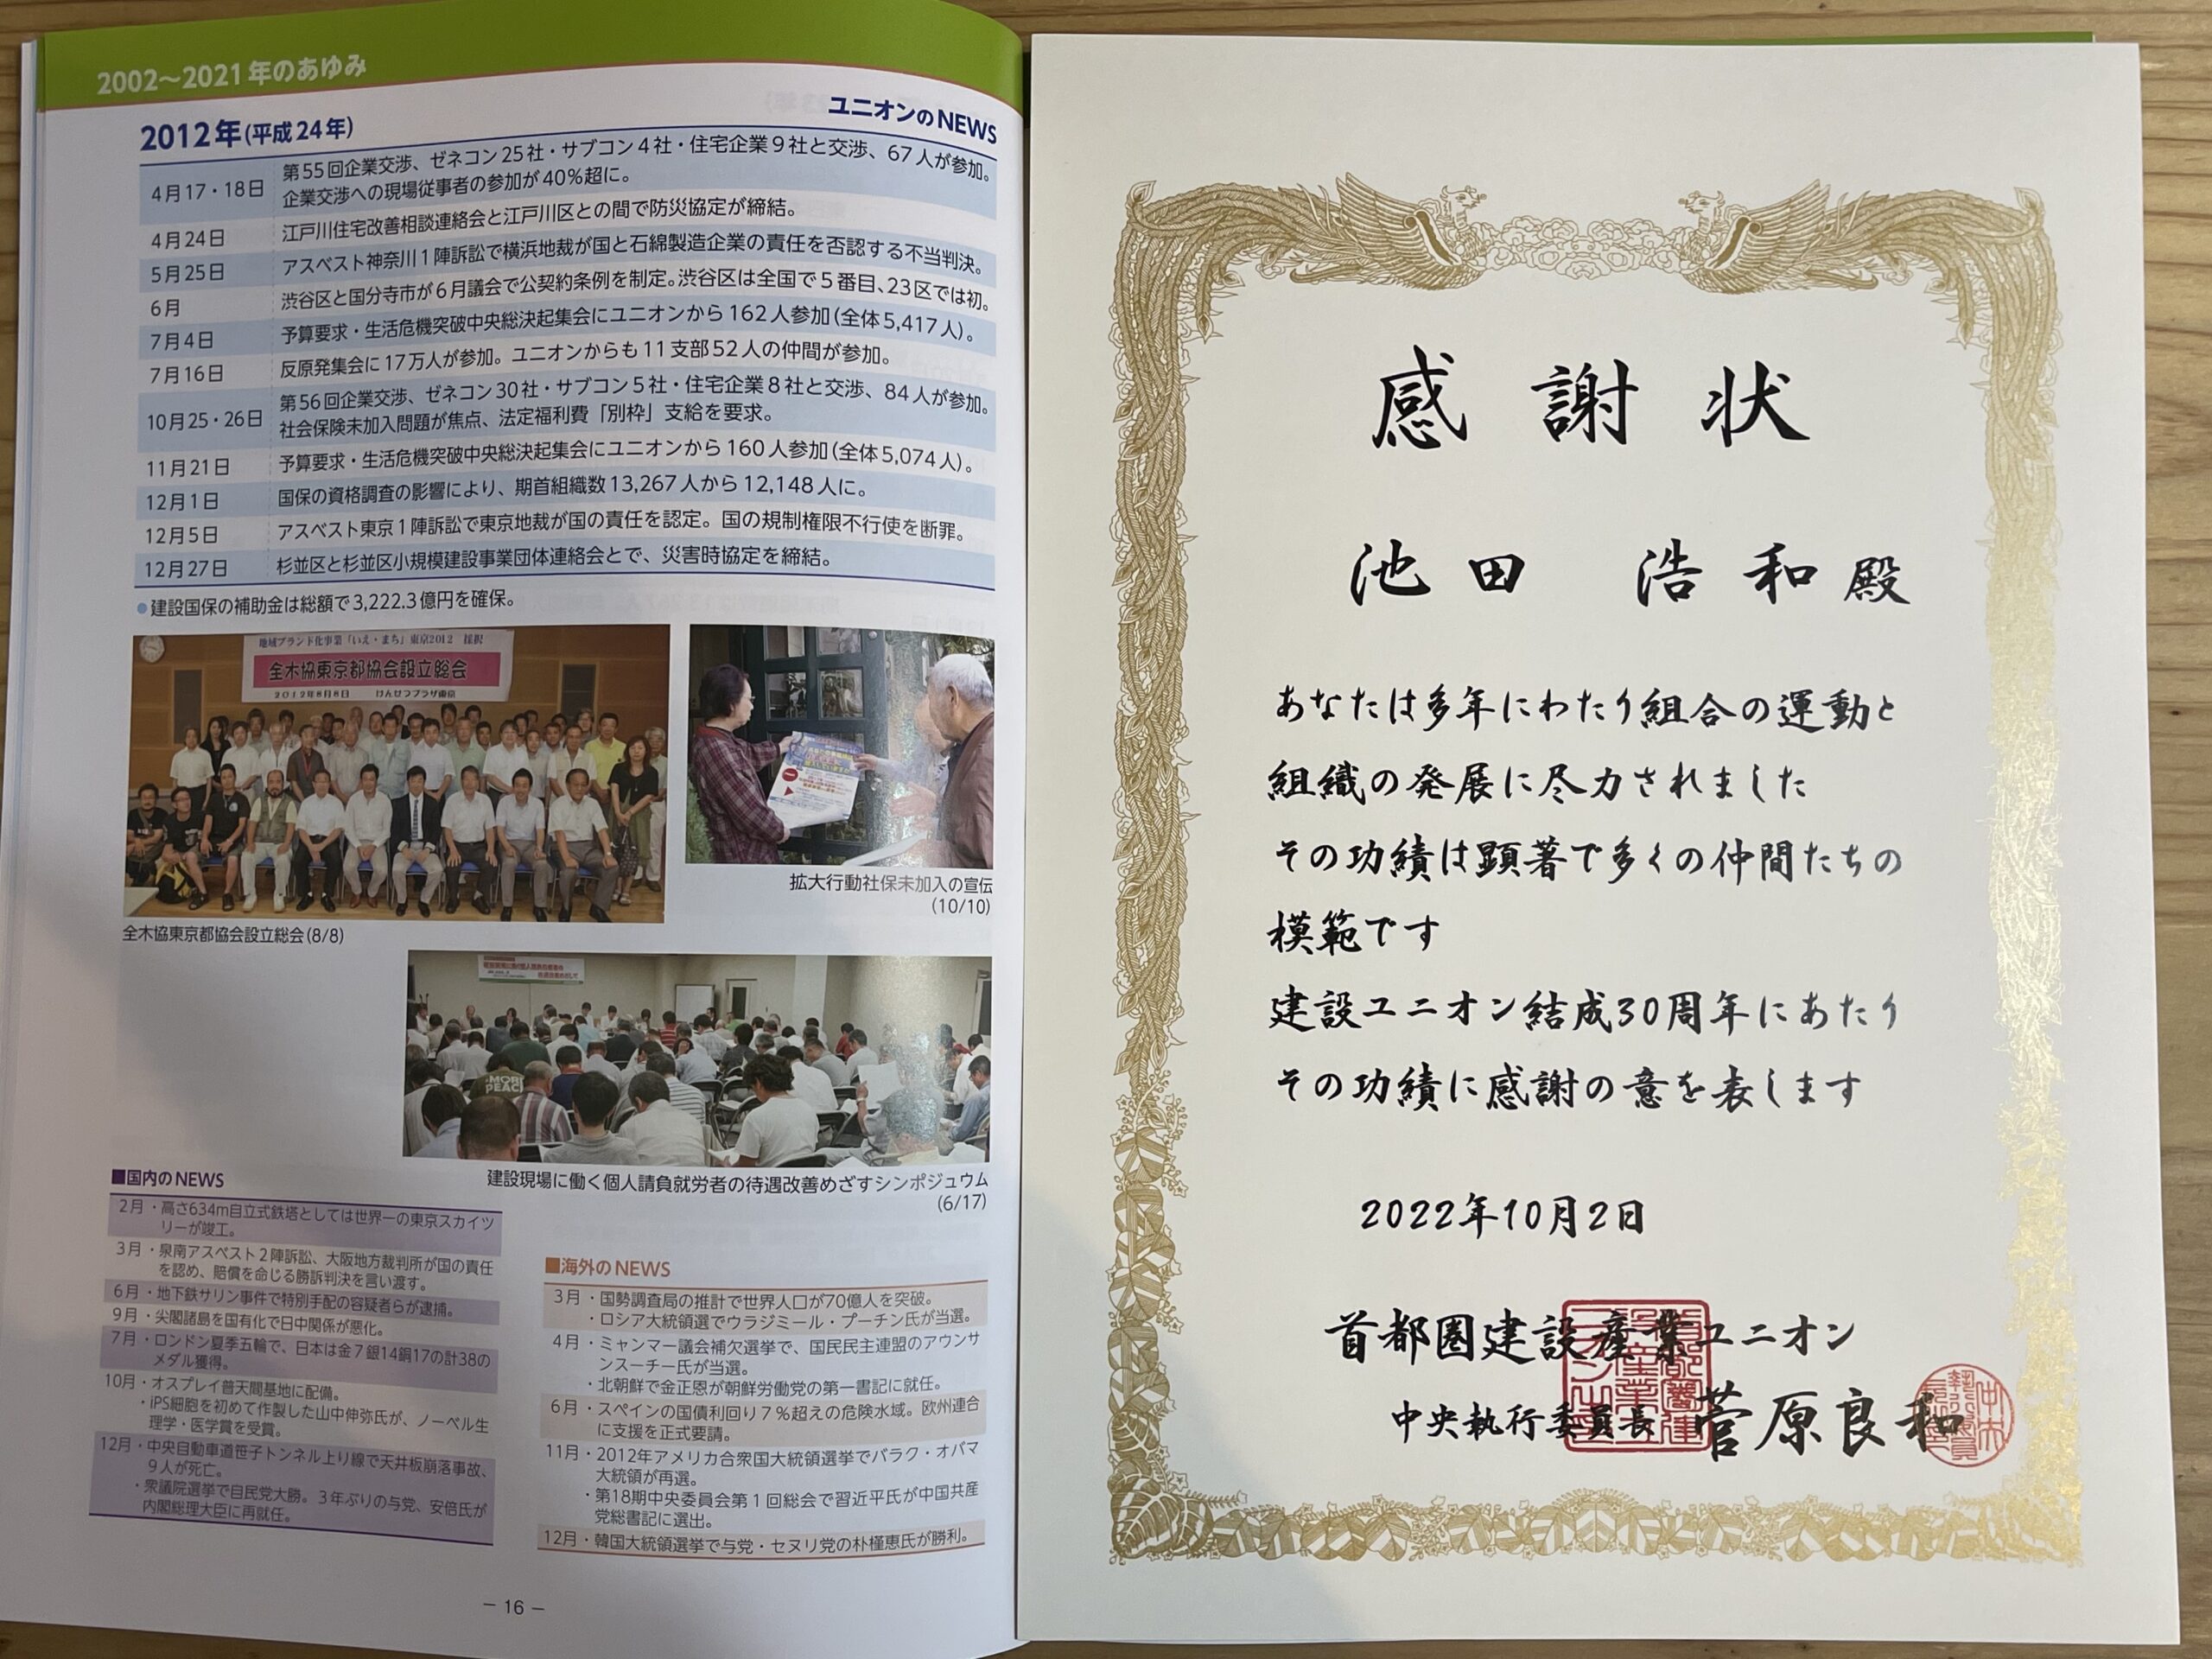 2002〜2021年のあゆみ
2012年(平成24年)
ユニオンのNEWS
4月17・18日 第55回企業交渉、ゼネコン25社・サブコン4社・住宅企業9社と交渉、67人が参加。
企業交渉への現場従事者の参加が40%超に。
4月24日 江戸川住宅改善相談連絡会と江戸川区との間で防災協定が締結。
5月25日 アスベスト神奈川1陣訴訟で横浜地裁が国と石綿製造企業の責任を否認する不当判決。
6月 渋谷区と国分寺市が6月議会で公契約条例を制定。渋谷区は全国で5番目、23区では初。
7月4日 予算要求・生活危機突破中央総決起集会にユニオンから162人参加(全体5,417人)。
7月16日 反原発集会に17万人が参加。ユニオンからも11支部52人の仲間が参加。
10月25・26日 第56回企業交渉、ゼネコン30社・サブコン5社・住宅企業8社と交渉、84人が参加。
社会保険未加入問題が焦点、法定福利費「別枠」支給を要求。
11月21日 予算要求・生活危機突破中央総決起集会にユニオンから160人参加(全体5,074人)。
12月1日 国保の資格調査の影響により、期首組織数13,267人から12,148人に。
12月5日 アスベスト東京1陣訴訟で東京地裁が国の責任を認定。国の規制権限不行使を断罪。
12月27日 杉並区と杉並区小規模建設事業団体連絡会とで、災害時協定を締結。
●建設国保の補助金は総額で3,222.3億円を確保。
地域ブランド化事業「いえ・まち」東京2012 採択
全木協東京都協会設立総会
2012年8月8日 けんせつプラザ東京
全木協東京都協会設立総会(8/8)
拡大行動社保未加入の宣伝
(10/10)
MORE
PEACE
建設現場に働く個人請負就労者の待遇改善めざすシンポジュウム
(6/17)
■国内のNEWS
2月・高さ634m自立式鉄塔としては世界一の東京スカイツ
リーが竣工。
3月・泉南アスベスト2陣訴訟、大阪地方裁判所が国の責任
を認め、賠償を命じる勝訴判決を言い渡す。
6月・地下鉄サリン事件で特別手配の容疑者らが逮捕。
9月・尖閣諸島を国有化で日中関係が悪化。
7月・ロンドン夏季五輪で、日本は金7銀14銅17の計38の
メダル獲得。
10月・オスプレイ普天間基地に配備。
・iPS細胞を初めて作製した山中伸弥氏が、ノーベル生
理学・医学賞を受賞。
12月・中央自動車道笹子トンネル上り線で天井板崩落事故、
9人が死亡。
・衆議院選挙で自民党大勝。3年ぶりの与党、安倍氏が
内閣総理大臣に再就任。
■海外のNEWS
3月・国勢調査局の推計で世界人口が70億人を突破。
・ロシア大統領選でウラジミール・プーチン氏が当選。
4月・ミャンマー議会補欠選挙で、国民民主連盟のアウンサ
ンスーチー氏が当選。
・北朝鮮で金正恩が朝鮮労働党の第一書記に就任。
6月・スペインの国債利回り7%超えの危険水域。欧州連合
に支援を正式要請。
11月・2012年アメリカ合衆国大統領選挙でバラク・オバマ
大統領が再選。
・第18期中央委員会第1回総会で習近平氏が中国共産
党総書記に選出。
12月・韓国大統領選挙で与党・セヌリ党の朴槿恵氏が勝利。
－16－
感謝状
池田 浩和殿
あなたは多年にわたり組合の運動と
組織の発展に尽力されました
その功績は顕著で多くの仲間たちの
模範です
建設ユニオン結成30周年にあたり
その功績に感謝の意を表します
2022年10月2日
首都圏建設産業ユニオン
中央執行委員長 菅原良和